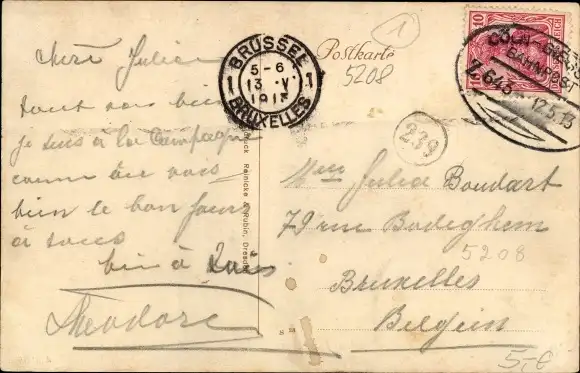 Chère Julia
Tout vas bien
je suis à la Campagne
comme tu vois
bien le bon jour
à tous
bien à Vous
Theodore
BRUSSEL
1 5-6 1
13 V
1913
BRUXELLES
Postkarte
1
5208
10
CÖLN
BAHNPOST
Z. 645
12.5.13
239
Julia Boudart
79 rue Bodeghem
5208
Bruxelles
Belgien
Reinicke & Rubin, Dresden
S M
5,-€